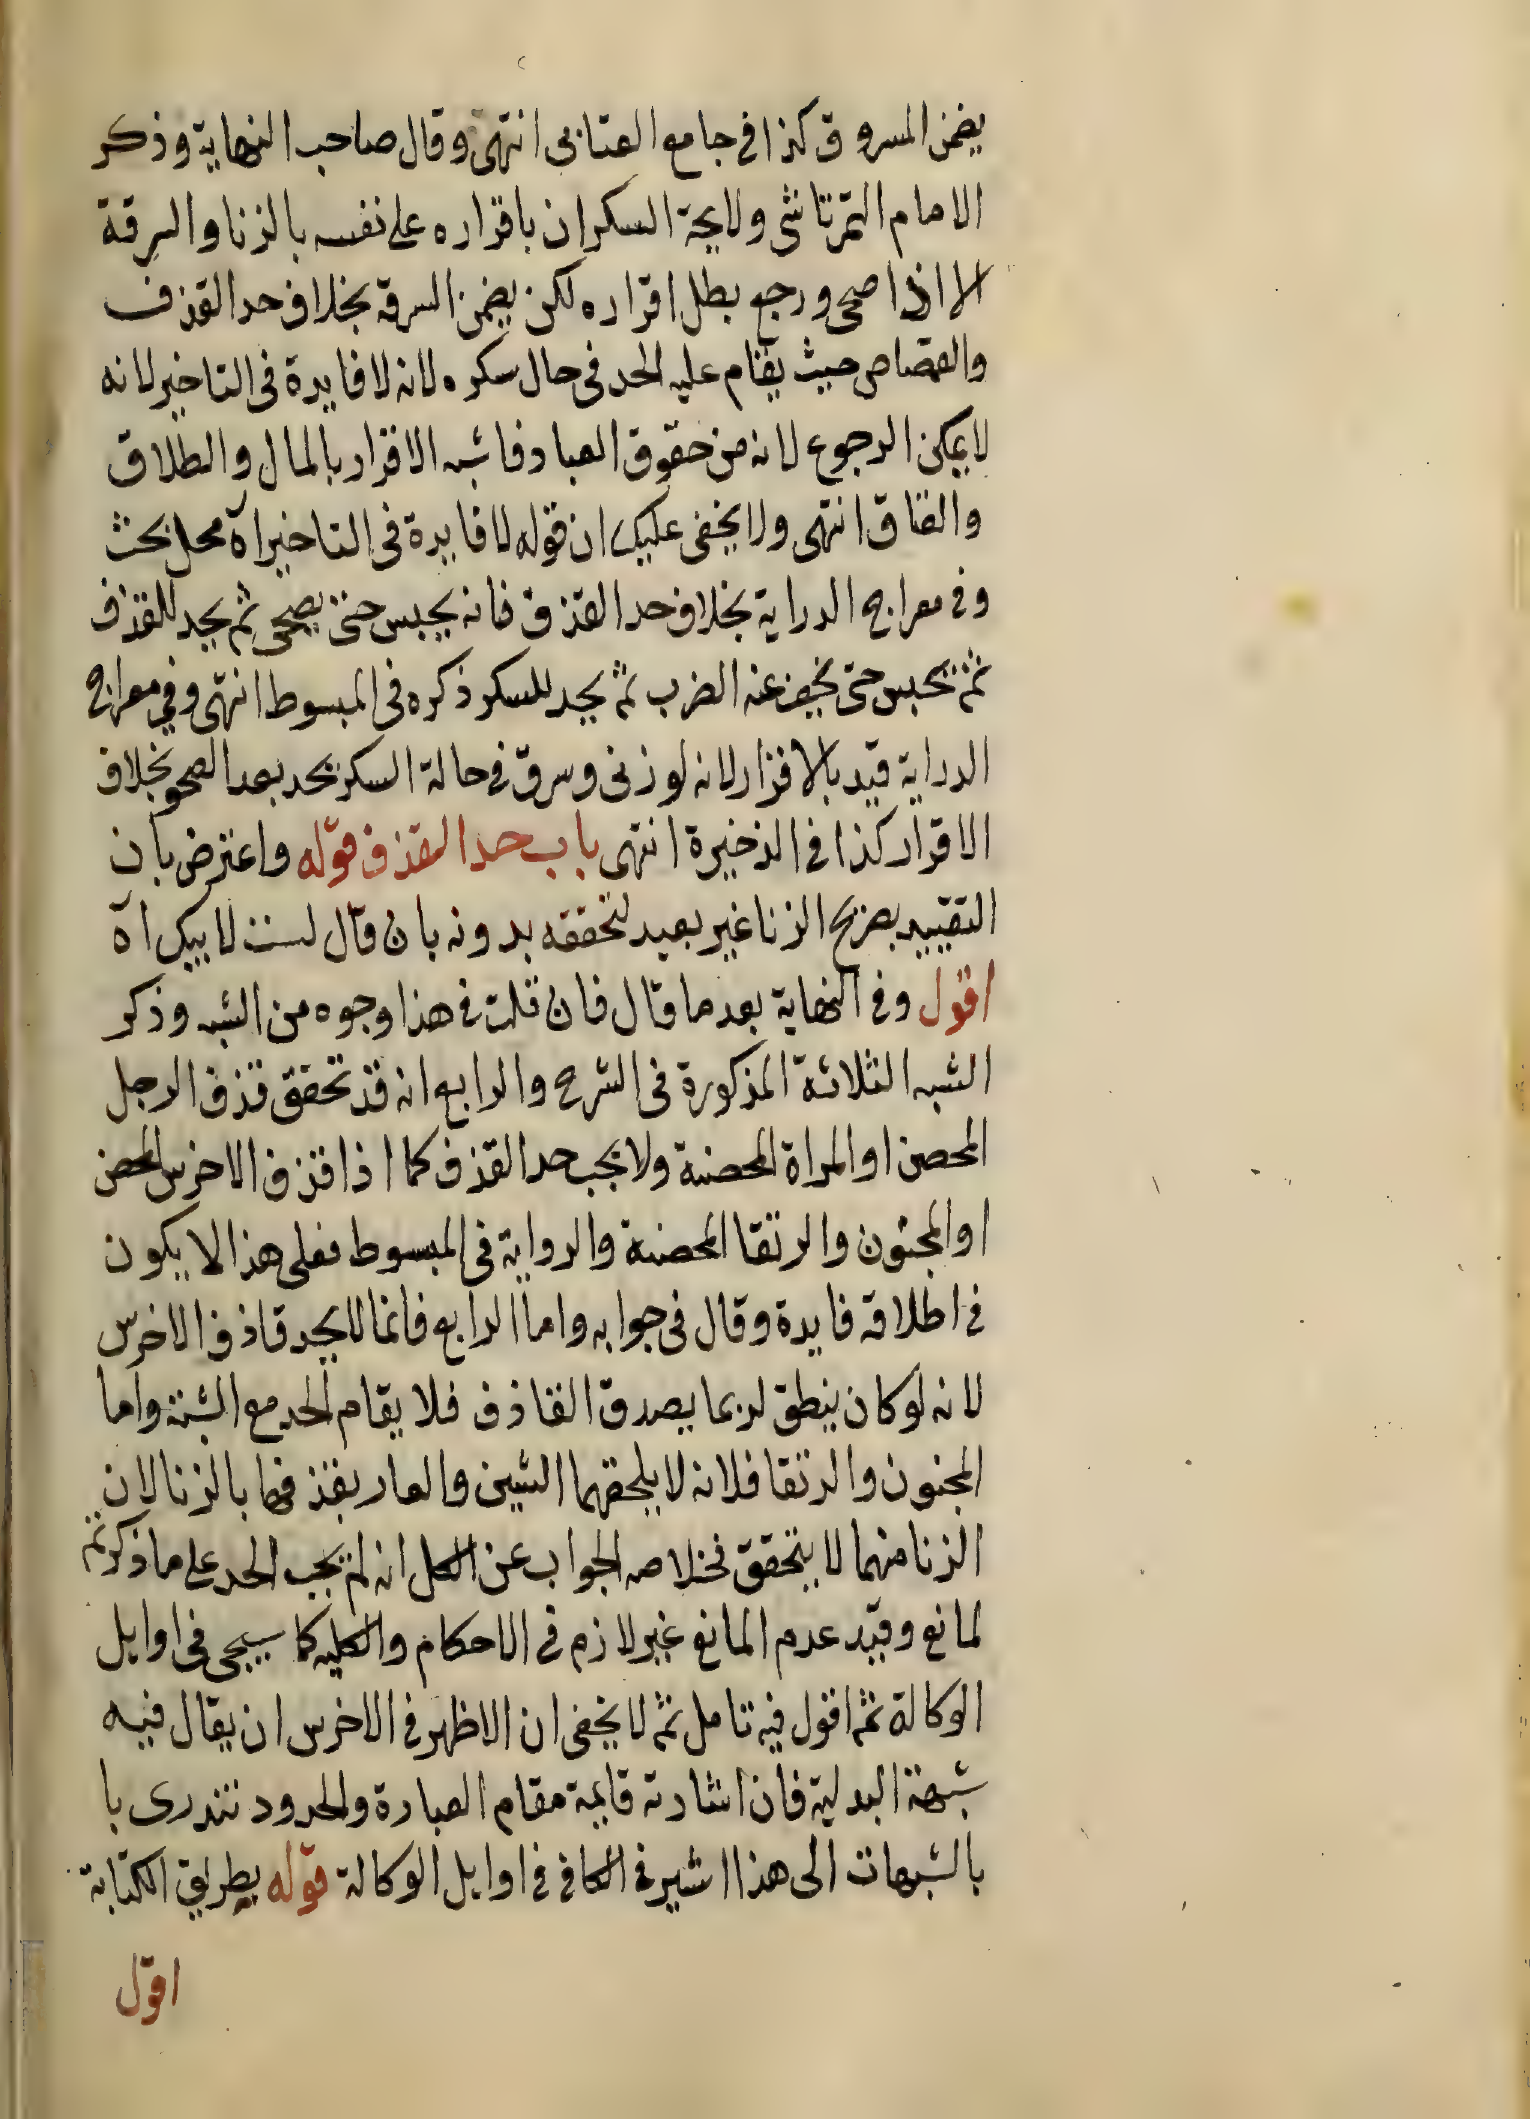 يضمن المسروق كذا في جامع العتابي انتهى وقال صاحب النهاية وذكر
الامام التمرتاشي ولا يحد السكران باقراره على نفسه بالزنا والسرقة
الا اذا صحى ورجع بطل اقراره لكن يضمن السرقة بخلاف حد القذف
والقصاص حيث يقام عليه الحد في حال سكره لانه لا فايدة في التاخير لانه
لا يمكن الرجوع لانه من حقوق العباد فاشبه الاقرار بالمال والطلاق
والعتاق انتهى ولا يخفى عليك ان قوله لا فايدة في التاخير آه محل بحث
وفي معراج الدراية بخلاف حد القذف فانه يحبس حتى يصحى ثم يحد للقذف
ثم يحبس حتى يخف عنه الضرب ثم يحد للسكر ذكره في المبسوط انتهى وفي معراج
الدراية قيد بالاقرار لانه لو زنى وسرق في حالة السكر يحد بعد الصحو بخلاف
الاقرار كذا في الذخيرة انتهى باب حد القذف قوله واعترض بان
التقييد بصريح الزنا غير بعيد لتحققه بدونه بان قال لست لابيك آه
اقول وفي النهاية بعد ما قال فان قلت في هذا وجوه من الشبه وذكر
الشبه الثلاثة المذكورة في الشرح والرابع انه قد تحقق قذف الرجل
المحصن او المراة المحصنة ولا يجب حد القذف كما اذا قذف الاخرس المحصن
او المجنون والرتقا المحصنة والرواية في المبسوط فعلى هذا لا يكون
في اطلاقه فايدة وقال في جوابه واما الرابع فانما لا يحد قاذف الاخرس
لانه لو كان ينطق لربما يصدق القاذف فلا يقام الحد مع الشبهة واما
المجنون والرتقا فلانه لا يلحقهما الشين والعار بقذفهما بالزنا لان
الزنا منهما لا يتحقق فخلاصه الجواب عن الكل انه لم يجب الحد على ما ذكر ثم
لمانع وقيد عدم المانع غير لازم في الاحكام والكليه كما سيجى في اوايل
الوكالة ثم اقول فيه تامل ثم لا يخفى ان الاظهر في الاخرس ان يقال فيه
شبهة البدلية فان اشارته قايمة مقام العبارة والحدود تندرى با
بالشبهات الى هذا اشير في الكافي في اوايل الوكالة قوله بطريق الكتابة
اقول